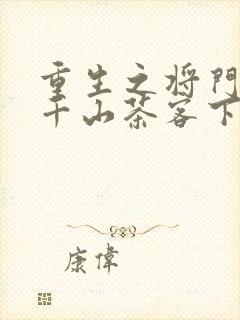 重生之将门
千山茶客下
康偉